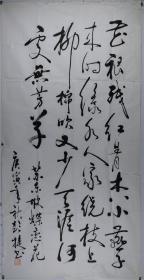 花褪残红青杏小燕子
来时绿水人家绕枝上
柳棉吹又少天涯何
處無芳草 苏东坡蝶恋花
庚寅年秋彭 书